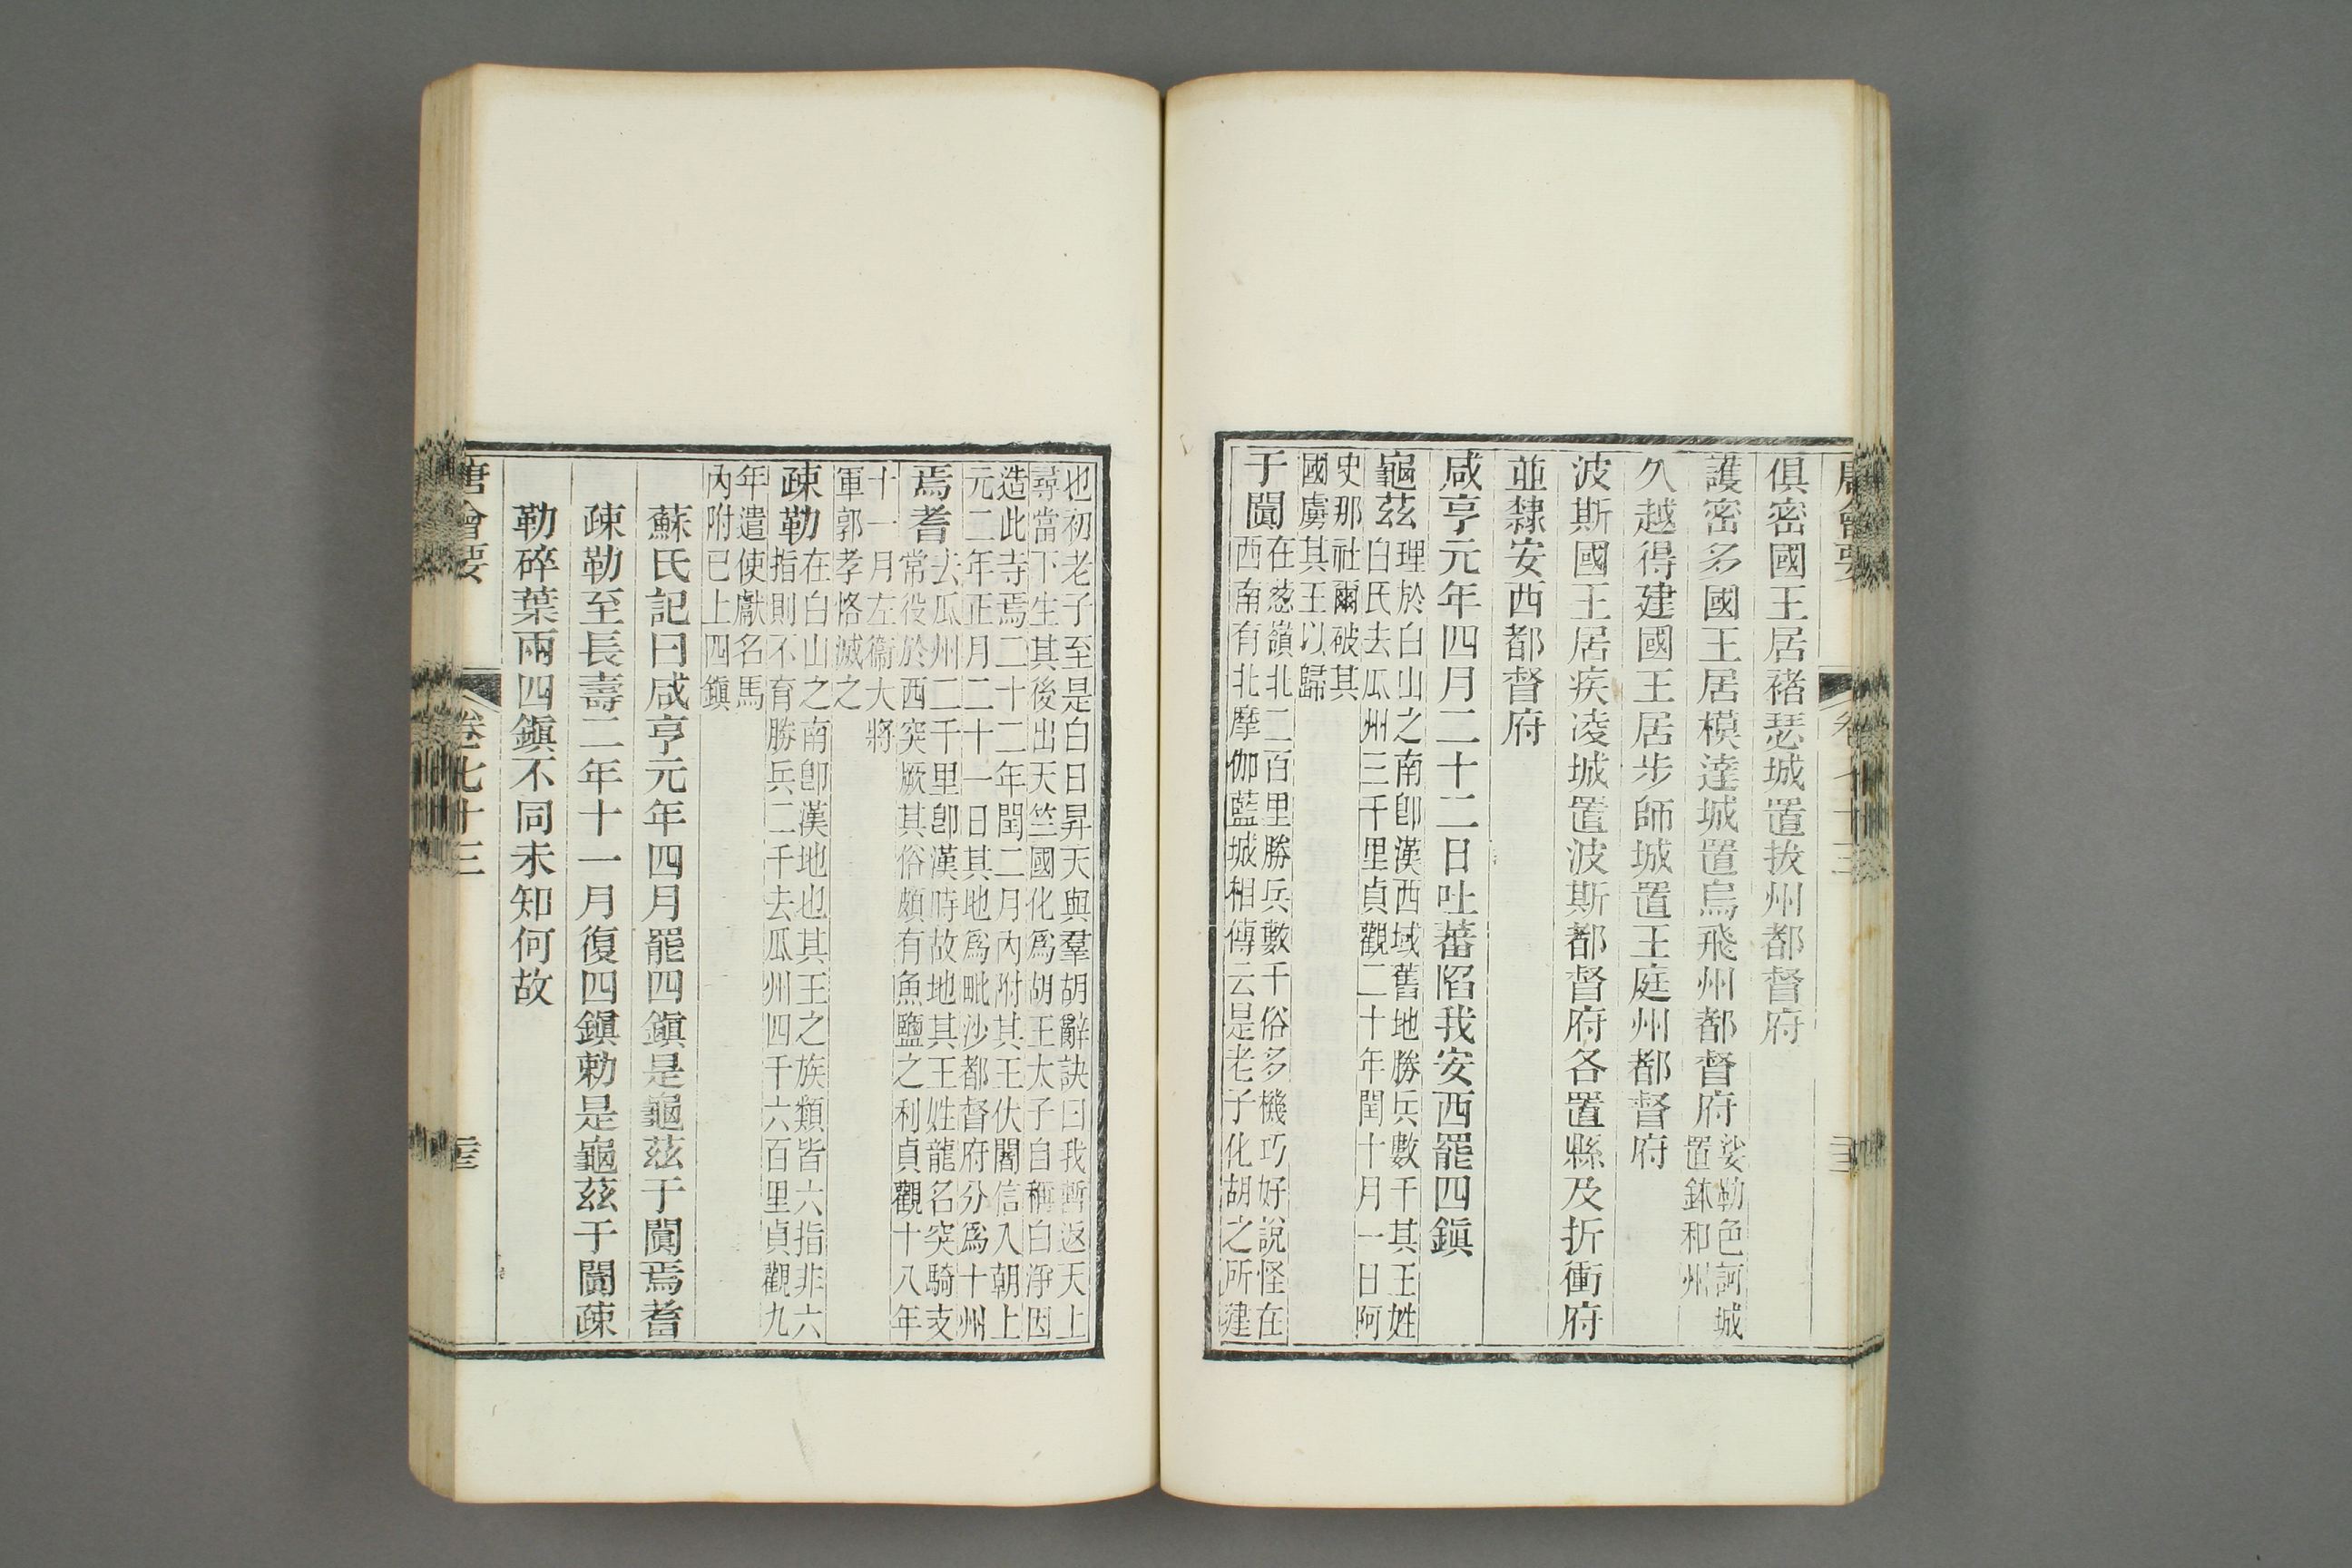 俱密國王居褚瑟城置拔州都督府
護密多國王居模達城置烏飛州都督府
娑勒色訶城
置鉢和州
久越得建國王居步師城置王庭州都督府
波斯國王居疾凌城置波斯都督府各置縣及折衝府
並隸安西都督府
咸亨元年四月二十二日吐蕃陷我安西罷四鎭
龜茲
理於白山之南卽漢西域舊地勝兵數千其王姓
白氏去瓜州三千里貞觀二十年閏十月一日阿
史那社爾破其
國虜其王以歸
于闐
在葱嶺北二百里勝兵數千俗多機巧好說怪在
西南有北摩伽藍城相傳云是老子化胡之所建
也初老子至是白日昇天與羣胡辭訣曰我暫返天上
尋當下生其後出天竺國化爲胡王太子自稱白淨因
造此寺焉二十二年閏二月內附其王伏闍信入朝上
元二年正月二十一日其地爲毗沙都督府分爲十州
焉耆
去瓜州二千里卽漢時故地其王姓龍名突騎支
常役於西突厥其俗頗有魚鹽之利貞觀十八年
十一月左衞大將
軍郭孝恪滅之
疎勒
在白山之南卽漢地也其王之族類皆六指非六
指則不育勝兵二千去瓜州四千六百里貞觀九
年遣使獻名馬
內附已上四鎭
蘇氏記曰咸亨元年四月罷四鎭是龜茲于闐焉耆
疎勒至長壽二年十一月復四鎭勅是龜茲于闐疎
勒碎葉兩四鎭不同未知何故
唐會要
卷七十三